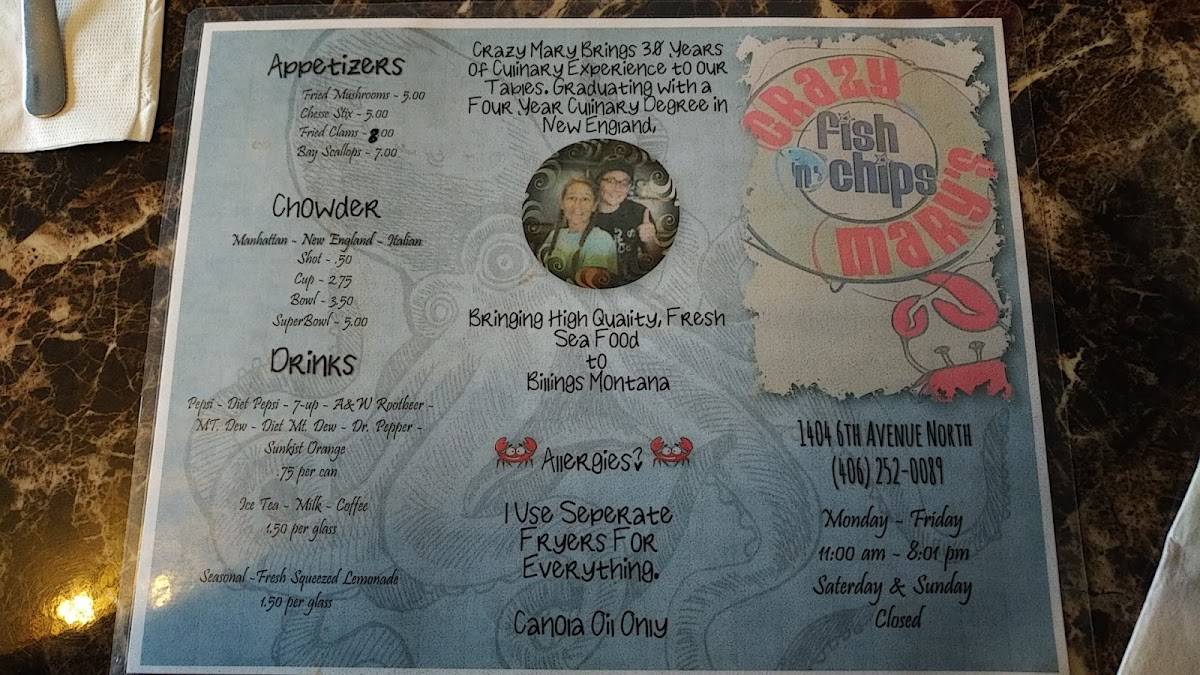 Appetizers
Fried Mushrooms - 5.00
Chesse Stix - 5.00
Fried Clams - 8.00
Bay Scallops - 7.00
Chowder
Manhattan - New England - Italian
Shot - .50
Cup - 2.75
Bowl - 3.50
SuperBowl - 5.00
Drinks
Pepsi - Diet Pepsi - 7-up - A&W Rootbeer -
MT. Dew - Diet Mt. Dew - Dr. Pepper -
Sunkist Orange
.75 per can
Ice Tea - Milk - Coffee
1.50 per glass
Seasonal - Fresh Squeezed Lemonade
1.50 per glass
Crazy Mary Brings 30 Years
of Culinary Experience to our
Tables. Graduating with a
Four Year Culinary Degree in
New England,
Bringing High Quality, Fresh
Sea Food
to
Billings Montana
Allergies?
I Use Seperate
Fryers For
Everything.
Canola Oil Only
Crazy
Fish
'n' Chips
Mary's
1404 6th Avenue North
(406) 252-0089
Monday - Friday
11:00 am - 8:01 pm
Saterday & Sunday
Closed